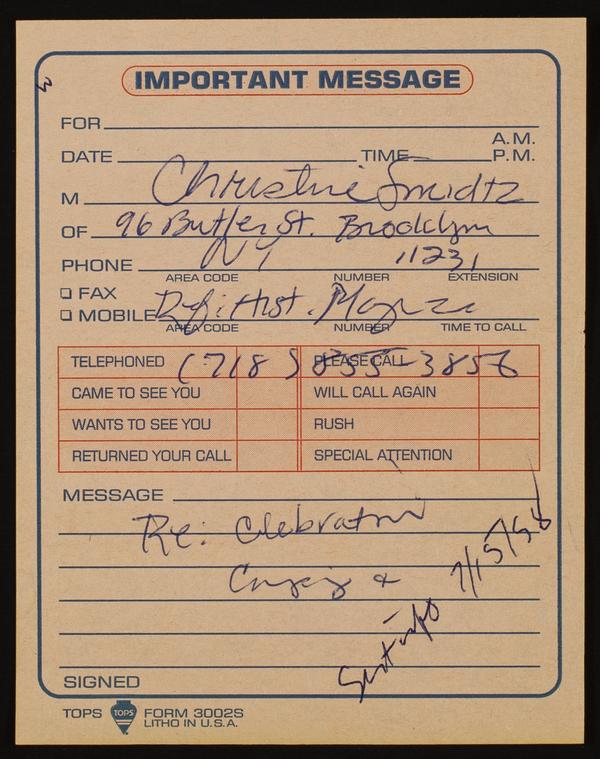 IMPORTANT MESSAGE
FOR
A.M.
DATE TIME P.M.
M Christine Smidtz
OF 96 Butler St. Brooklyn
NY 11231
PHONE
AREA CODE NUMBER EXTENSION
FAX
MOBILE Hist.
AREA CODE NUMBER TIME TO CALL
TELEPHONED PLEASE CALL
(718) 855-3856
CAME TO SEE YOU WILL CALL AGAIN
WANTS TO SEE YOU RUSH
RETURNED YOUR CALL SPECIAL ATTENTION
MESSAGE
Re: Celebration
&
Sent info 7/15/98
SIGNED
TOPS TOPS FORM 3002S
LITHO IN U.S.A.